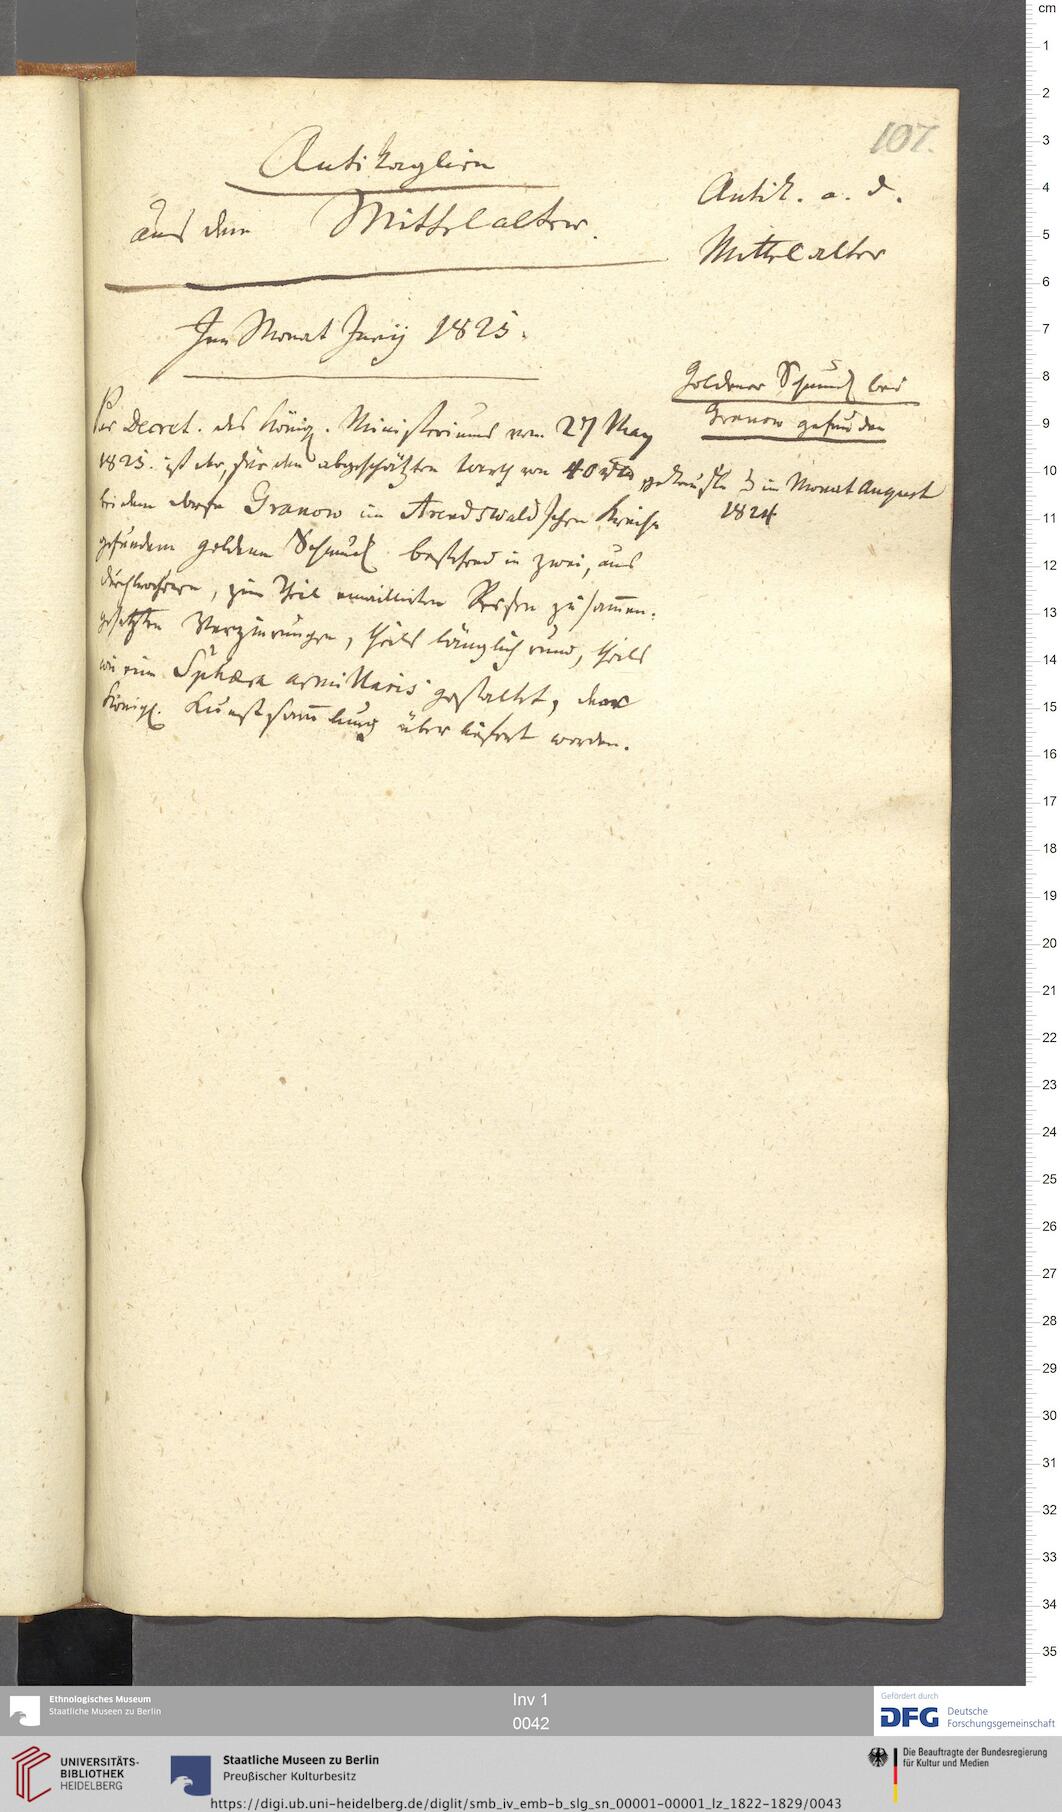 107.
Antikaglien
aus dem Mittelalter.
Antik. a. d.
Mittelalter
Im Monat Juny 1825.
Goldener Schmuck bei
Granow gefunden
Per Decret. des Königl. Ministeriums vom 27 May
1825. ist der, für den abgeschätzten Werth von 40 rtl gekaufte u im Monat August
1824
bei dem Dorfe Granow im Arendswaldschen Kreise
gefundene goldene Schmuck bestehend in zwei, aus
durchbrochenen, zum Theil emaillirten zusammen-
gesetzten Verzierungen, theils länglich rund, theils
wie eine Sphæra armillaris gestaltet, der
Königl. Kunstsammlung überliefert worden.
cm
1
2
3
4
5
6
7
8
9
10
11
12
13
14
15
16
17
18
19
20
21
22
23
24
25
26
27
28
29
30
31
32
33
34
35
Ethnologisches Museum
Staatliche Museen zu Berlin
Inv 1
0042
Gefördert durch
DFG Deutsche
Forschungsgemeinschaft
UNIVERSITÄTS-
BIBLIOTHEK
HEIDELBERG
Staatliche Museen zu Berlin
Preußischer Kulturbesitz
Die Beauftragte der Bundesregierung
für Kultur und Medien
https://digi.ub.uni-heidelberg.de/diglit/smb_iv_emb-b_slg_sn_00001-00001_lz_1822-1829/0043